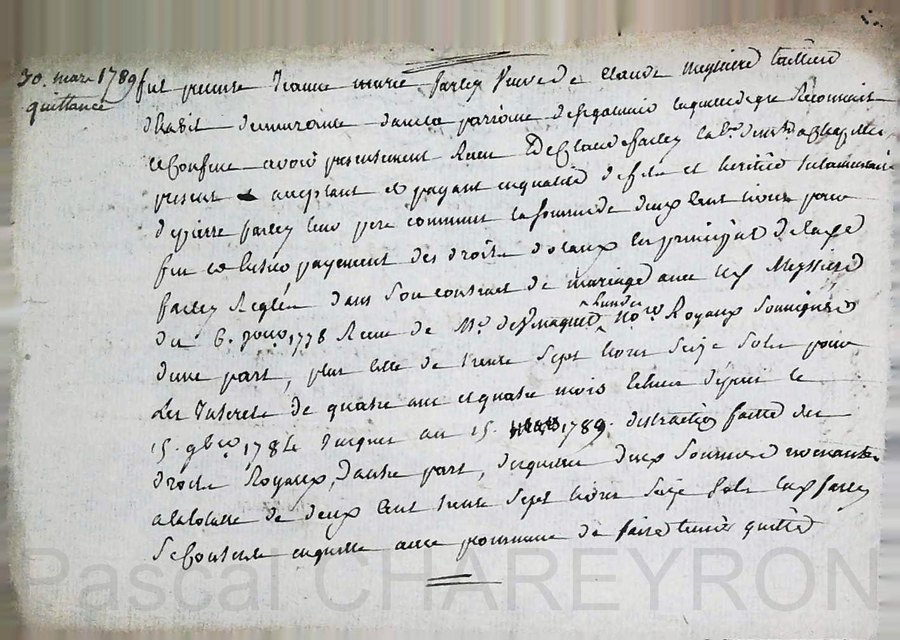 30. mars 1789
quittance
fut presente Jeanne marie farley Veuve de Claude Meyssierd tailleur
d'habit demeurante dans la paroisse de laquelle de gré Reconnait
et Confesse avoir presentement Receu De Claude farley lab.r
present acceptant et payant en qualité de fils et heritier testamentaire
de pierre farley leur pere commun la somme de deux cent livres pour
fin et entier payement des droits dotaux en principal de lad.e
farley Reglés dans son contrat de mariage avec led. Meyssierd
du 6. 1778 Receu de M.e l'un des No.res Royaux soussignés
d'une part, plus celle de trente sept livres seize sols pour
les Interets de quatre ans et quatre mois echeus depuis le
15. 9bre 1784 jusques au 15. mars 1789. distraction faitte des
droits Royaux, d'autre part, desquelles deux sommes revenantes
a la totalle de deux cent trente sept livres seize sols lad. farley
se contente en quitte avec promesse de faire tenir quitte
Pascal CHAREYRON